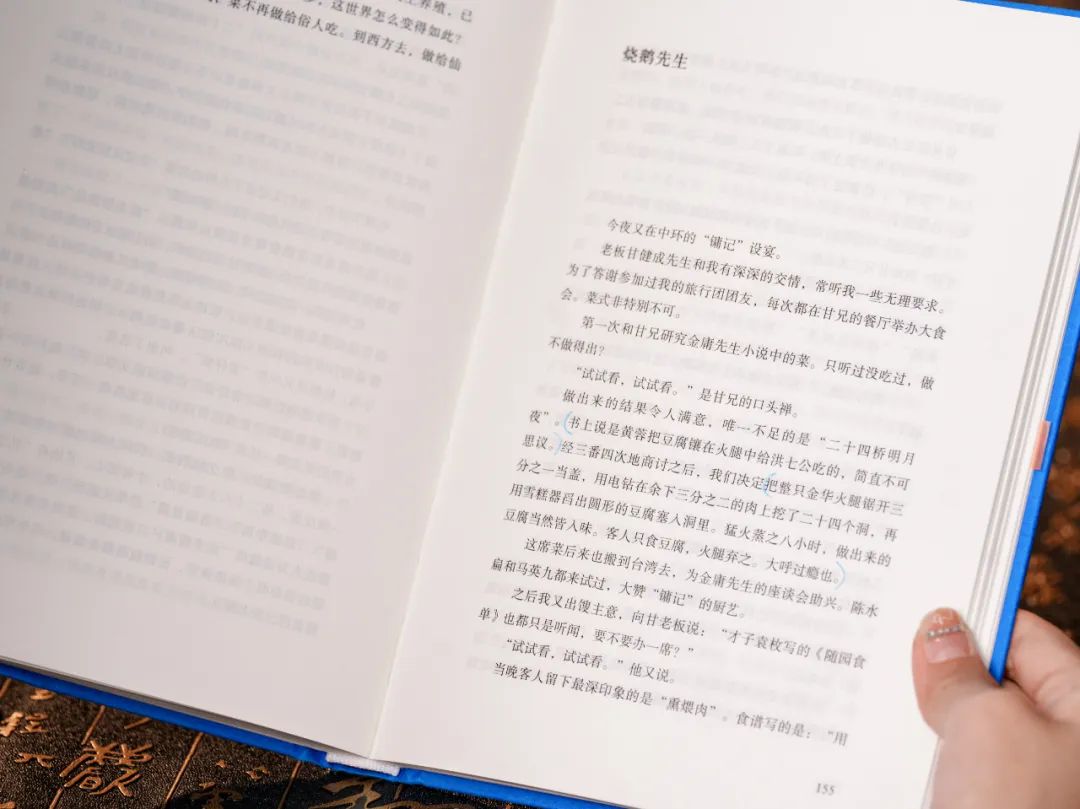 养殖，已
，这世界怎么变得如此？
菜不再做给俗人吃。到西方去，做给仙
烧鹅先生
今夜又在中环的“镛记”设宴。
老板甘健成先生和我有深深的交情，常听我一些无理要求。
为了答谢参加过我的旅行团团友，每次都在甘兄的餐厅举办大食
会。菜式非特别不可。
第一次和甘兄研究金庸先生小说中的菜。只听过没吃过，做
不做得出？
“试试看，试试看。”是甘兄的口头禅。
做出来的结果令人满意，唯一不足的是“二十四桥明月
夜”。书上说是黄蓉把豆腐镶在火腿中给洪七公吃的，简直不可
思议。经三番四次地商讨之后，我们决定把整只金华火腿锯开三
分之一当盖，用电钻在余下三分之二的肉上挖了二十四个洞，再
用雪糕器舀出圆形的豆腐塞入洞里。猛火蒸之八小时，做出来的
豆腐当然皆入味。客人只食豆腐，火腿弃之。大呼过瘾也。
这席菜后来也搬到台湾去，为金庸先生的座谈会助兴。陈水
扁和马英九都来试过，大赞“镛记”的厨艺。
之后我又出馊主意，向甘老板说：“才子袁枚写的《随园食
单》也都只是听闻，要不要办一席？”
“试试看，试试看。”他又说。
当晚客人留下最深印象的是“熏煨肉”。食谱写的是：“用
155